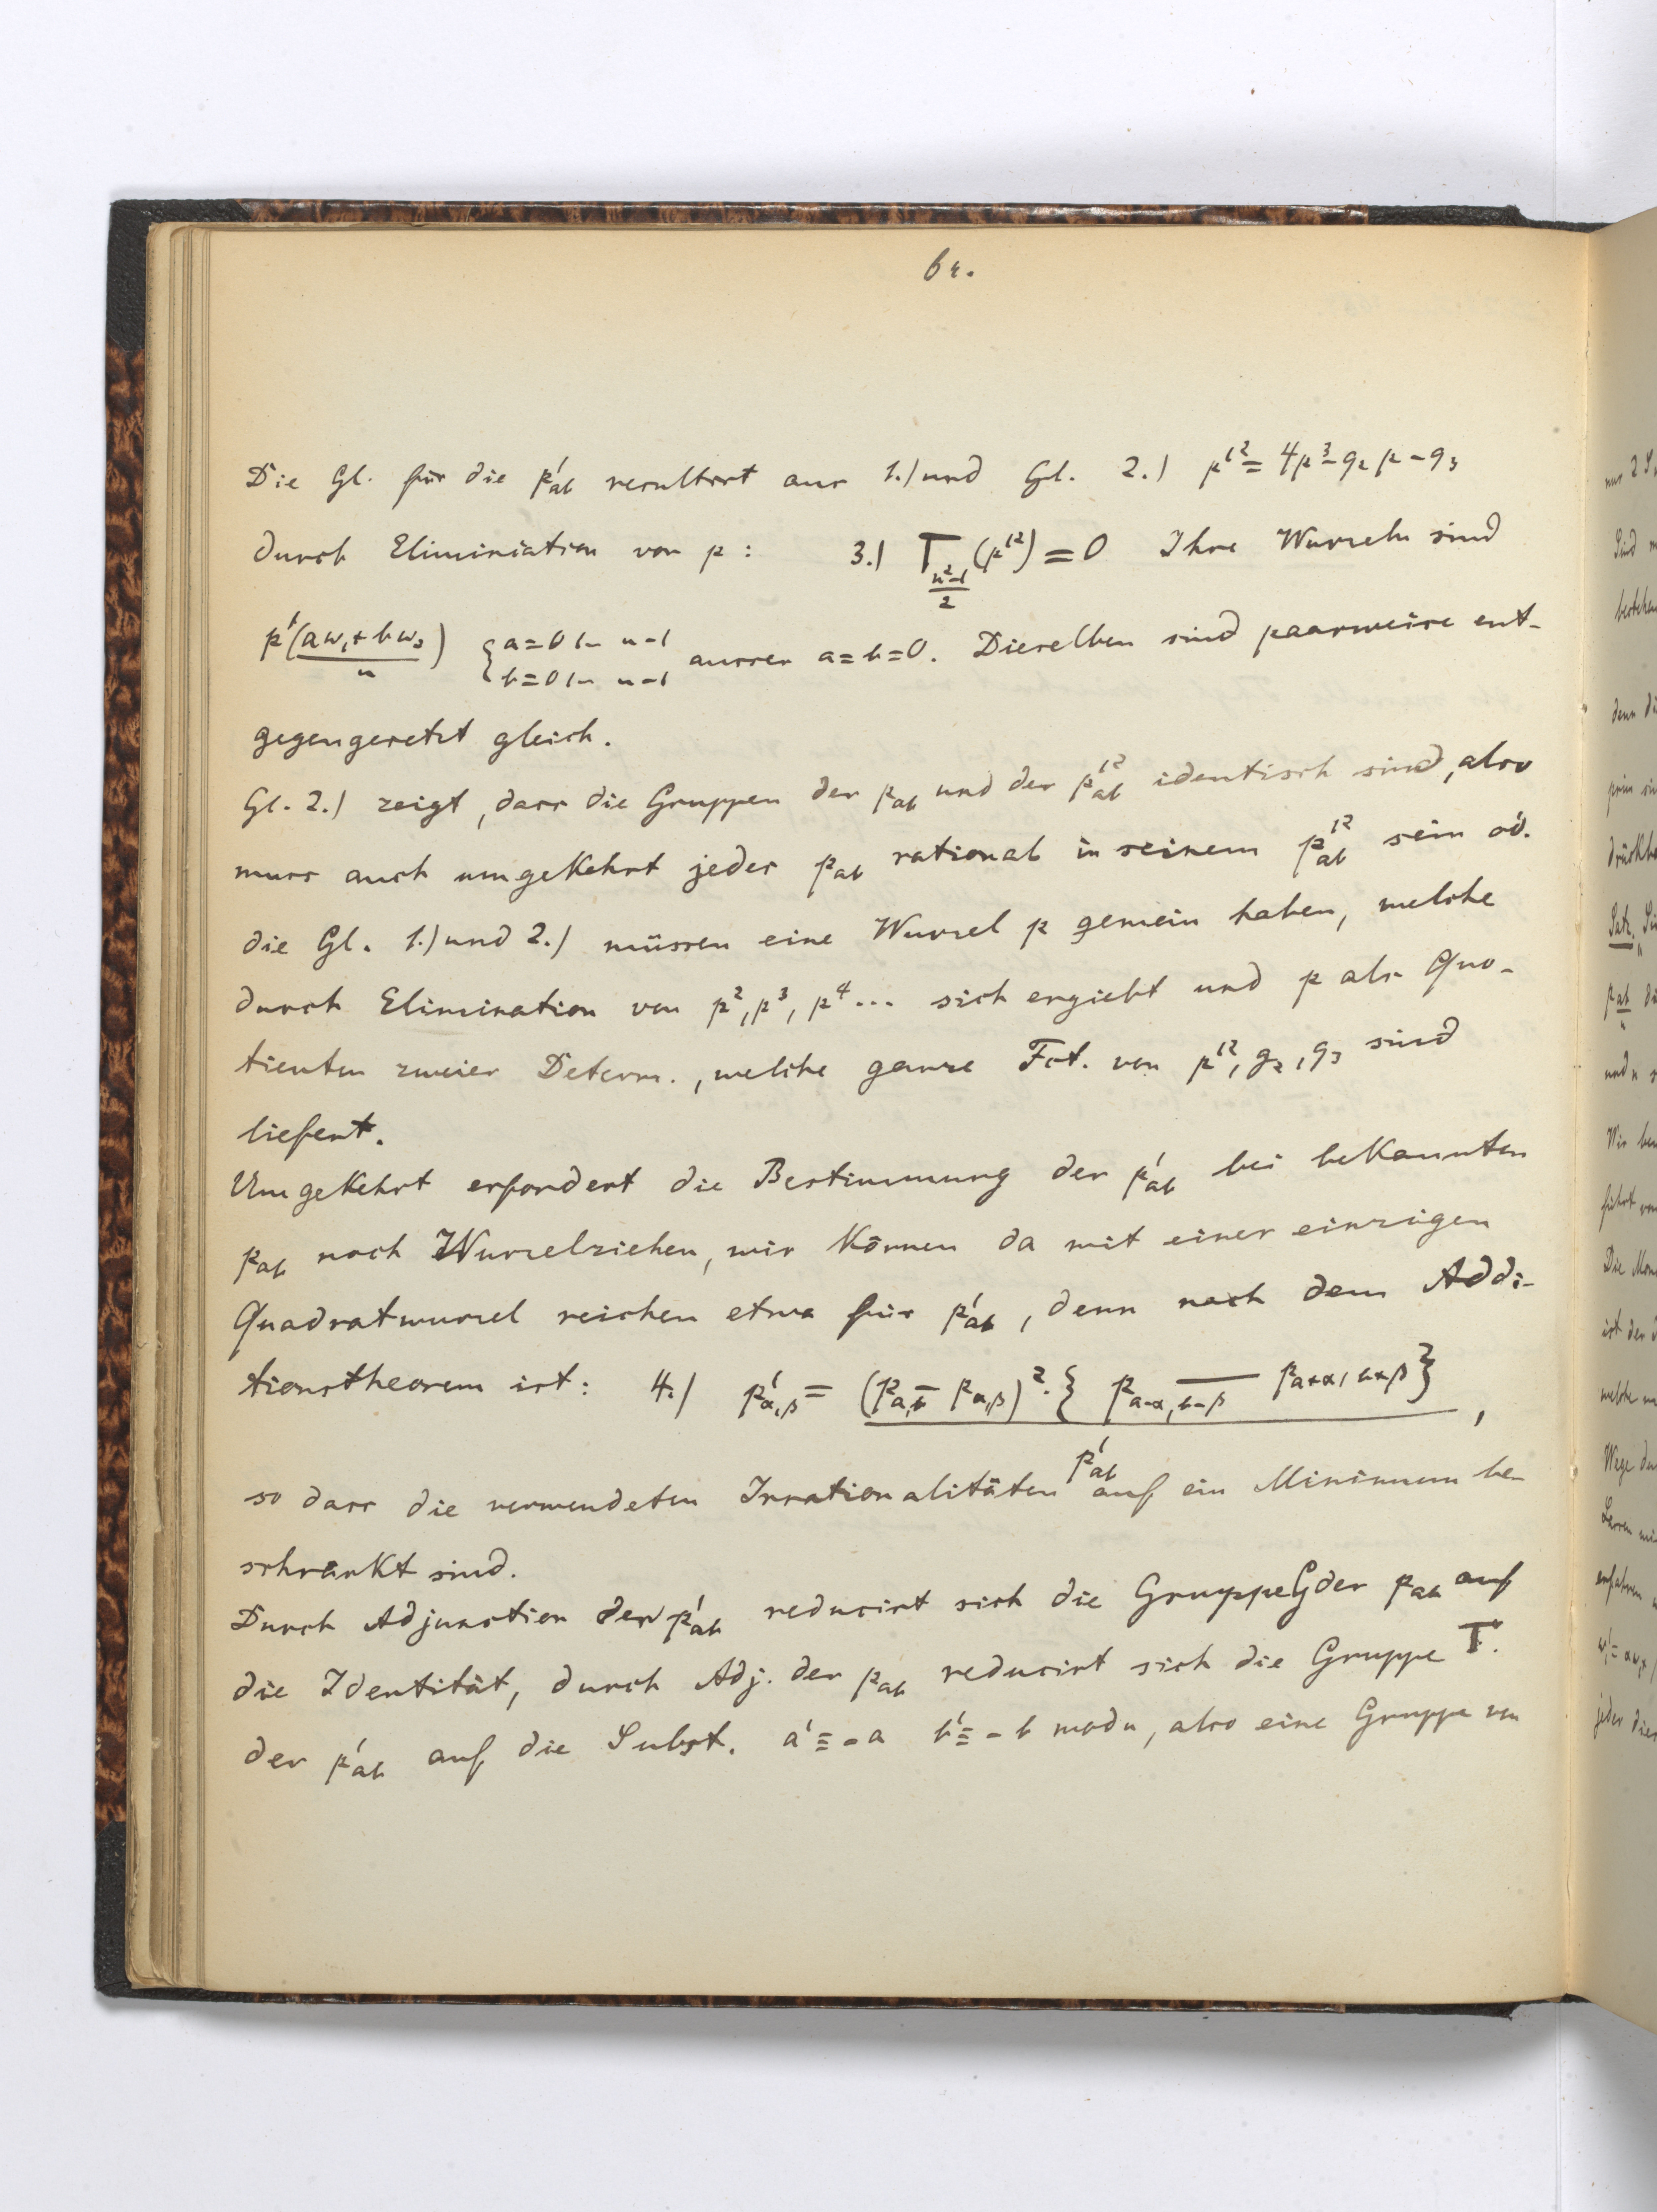 62.
Die Gl. für die p'ab resultirt aus 1.) und Gl. 2.) p'² = 4p³-g₂p-g₃
durch Eliminiation von p: 3.) T_{(n²-1)/2}(p'²) = 0 Ihre Wurzeln sind
p'((aω₁+bω₃)/n) {a=0 1- n-1 b=0 1- n-1 ausser a=b=0. Dieselben sind paarweise ent-
gegengesetzt gleich.
Gl. 2.) zeigt, dass die Gruppen der pab und der p'²ab identisch sind, also
muss auch umgekehrt jedes pab rational in seinem p'²ab sein od.
die Gl. 1.) und 2.) müssen eine Wurzel p gemein haben, welche
durch Elimination von p², p³, p⁴... sich ergiebt und p als Quo-
tienten zweier Determ., welche ganze Fct. von p'², g₂, g₃ sind
liefert.
Umgekehrt erfordert die Bestimmung der p'ab bei bekannten
pab noch Wurzelziehen, wir können da mit einer einzigen
Quadratwurzel reichen etwa für p'ab, denn nach dem Addi-
tionstheorem ist: 4.) p'α,β = (pa,b - pα,β)².{pa-α,b-β — pa+α,b+β} / p'ab ,
so dass die verwendeten Irrationalitäten auf ein Minimum be-
schränkt sind.
Durch Adjunction der p'ab reducirt sich die Gruppe G der pab auf
die Identität, durch Adj. der pab reducirt sich die Gruppe T.
der p'ab auf die Subst. a' ≡ -a b' ≡ -b mod n, also eine Gruppe von